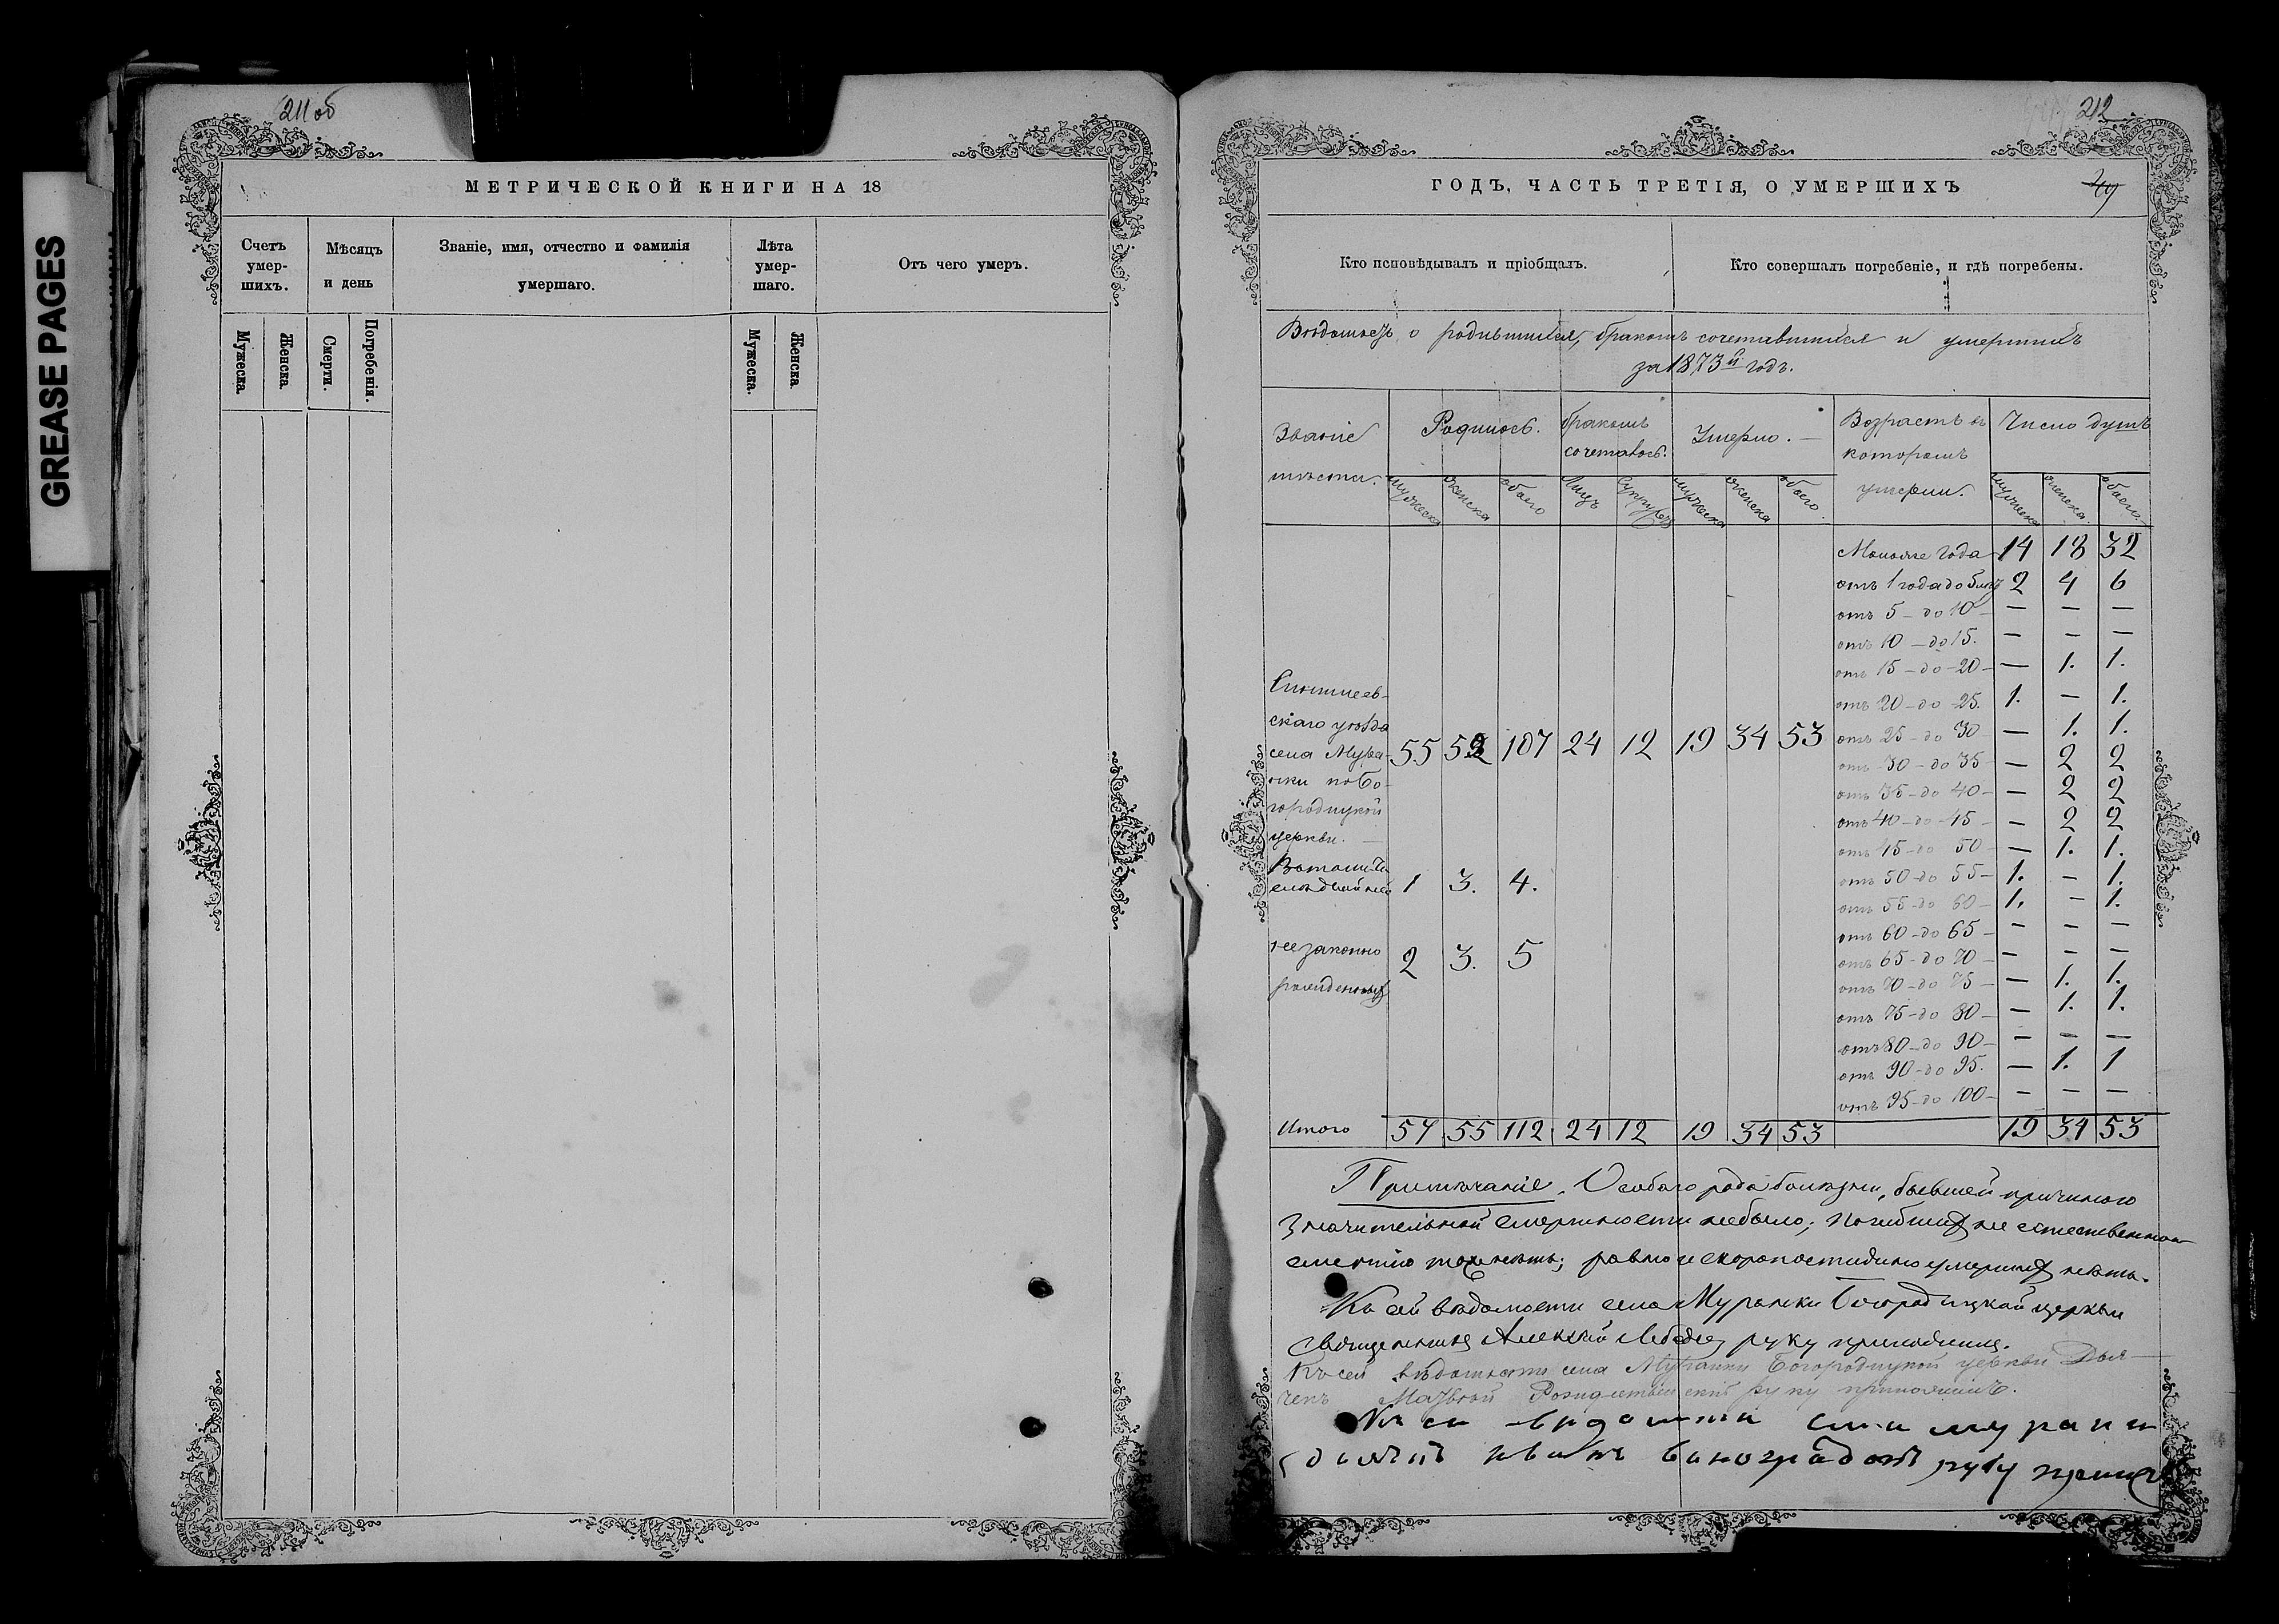 GREASE PAGES
211 об
МЕТРИЧЕСКОЙ КНИГИ НА 18
Счетъ умер-шихъ.
Мѣсяцъ и день
Званіе, имя, отчество и фамилія умершаго.
Лѣта умер-шаго.
Отъ чего умеръ.
Мужеска. Женска. Смерти. Погребенія. Мужеска. Женска.
212
ГОДЪ, ЧАСТЬ ТРЕТІЯ, О УМЕРШИХЪ
Кто исповѣдывалъ и пріобщалъ.
Кто совершалъ погребеніе, и гдѣ погребены.
Вѣдомость о родившихся, бракомъ сочетавшихся и умершихъ
за 1873й годъ.
Званіе мѣста.
Родилось.
бракомъ сочеталось.
Умерло.
Возрастъ въ которомъ умерли.
Число душъ
мужеска женска обоего лицъ супружествъ мужеска женска обоего мужеска женска обоего
Моложе года 14 18 32
отъ 1 года до 5 лѣтъ 2 4 6
отъ 5 – до 10 – — — —
отъ 10 – до 15. — — —
отъ 15 – до – 20 – — 1. 1.
отъ 20 – до 25. 1. — 1.
отъ 25 – до 30 — 1. 1.
отъ 30 – до 35 – — 2 2
отъ 35 – до 40 – — 2 2
отъ 40 – до – 45 – — 2 2
отъ 45 – до 50 – — 1. 1.
отъ 50 – до 55 – 1. — 1.
отъ 55 – до 60 – 1. — 1.
отъ 60 – до 65 – — — —
отъ 65 – до 70 – — — —
отъ 70 – до 75 – — 1. 1.
отъ 75 – до 80 – — 1. 1.
отъ 80 – до 90 – — — —
отъ 90 – до 95. — 1. 1
отъ 95 – до 100 – — — —
скаго уѣзда
села Мура-
нки по Бо-
городицкой
церкви.
55 52 107 24 12 19 34 53
1 3. 4.
незаконно
рожденныхъ
2 3. 5
Итого 57 55 112 24 12 19 34 53 19 34 53
Примѣчаніе. Особаго рода болѣзни, бывшей причиною
значительной смертности не было; погибшихъ не естественною
смертію тоже нѣтъ; равно и скоропостижно умершихъ нѣтъ.
Къ сей вѣдомости села Муранки Богородицкой церкви
священникъ Алексѣй Лебедев руку приложилъ.
Къ сей вѣдомости села Муранки Богородицкой церкви Дья-
чекъ Рождественскій руку приложилъ.
Къ сей вѣдомости села муранки
виноградовъ руку прилож